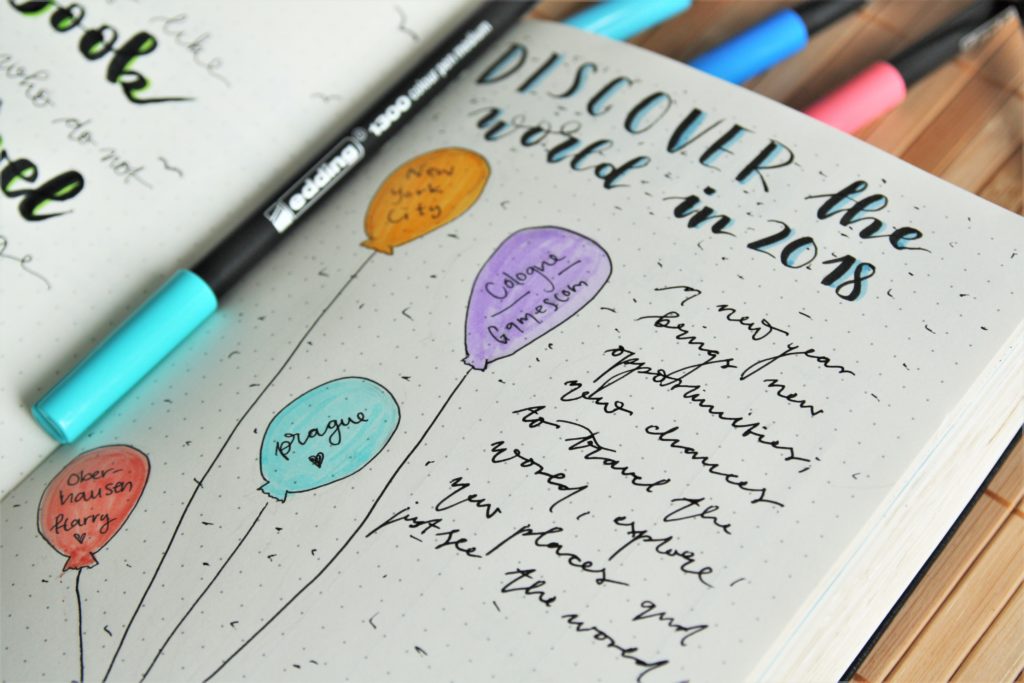 ook
like
who do not
vel
edding 1300 colour pen medium
DISCOVER the
world in 2018
New
York
City
Cologne
Gamescom
prague
Ober-
hausen
Harry
a new year
brings new
opportunities,
new chances
to travel the
world, explore
new places and
just see
the world